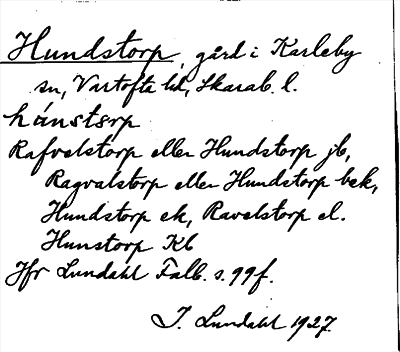 Hundstorp, gård i Karleby
sn, Vartofta hd, Skarab. l.
hånstsrp
Rafvelstorp eller Hundstorp jb,
Ragvalstorp eller Hundstorp bek,
Hundstorp ek, Ravelstorp el.
Hunstorp Kb
Jfr Lundahl Falb. s. 99 f.
I. Lundahl 1927.